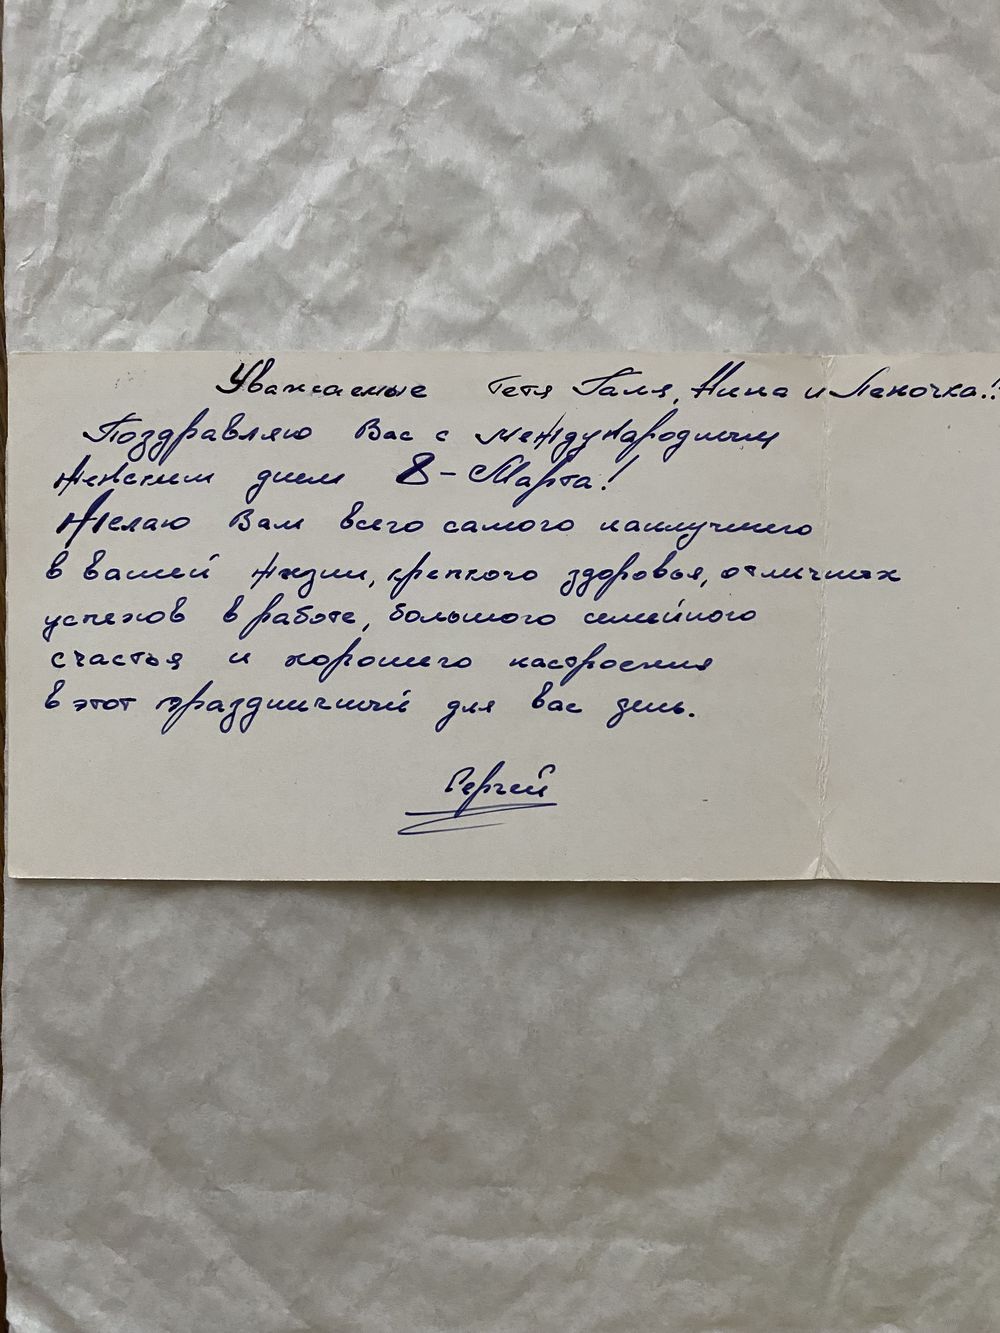 Уважаемые тетя Галя, Нина и Леночка!!
Поздравляю Вас с международным
женским днем 8-Марта!
Желаю Вам всего самого наилучшего
в вашей жизни, крепкого здоровья, отличных
успехов в работе, большого семейного
счастья и хорошего настроения
в этот праздничный для вас день.
Сергей